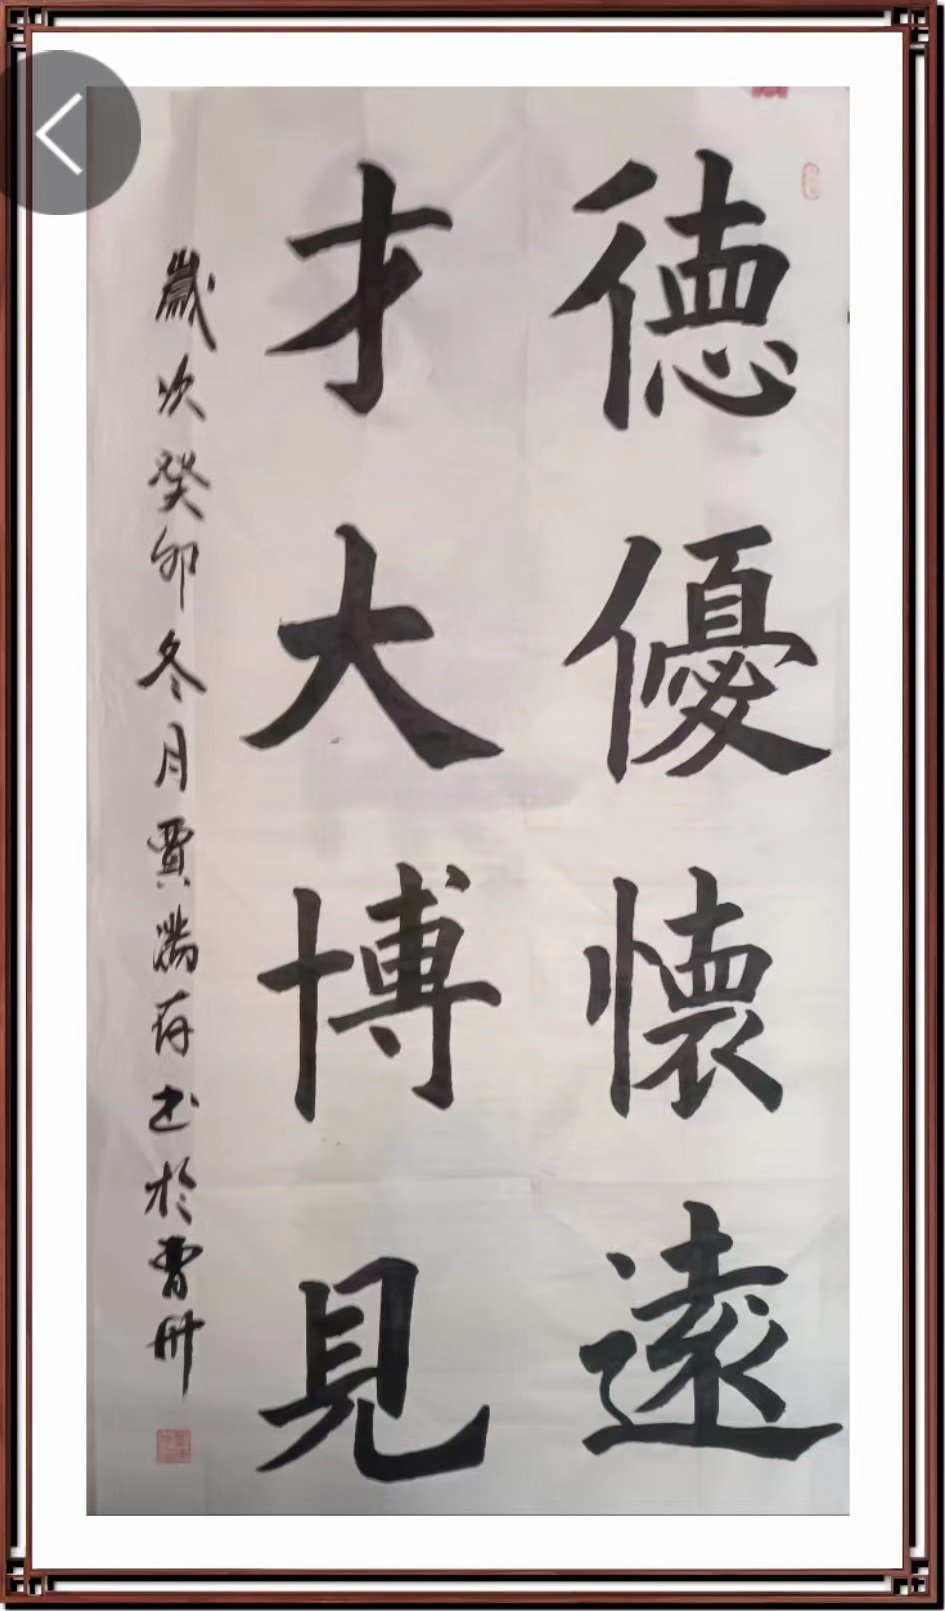 德優懷遠
才大博見
歲次癸卯冬月賈瀚存书於曹州